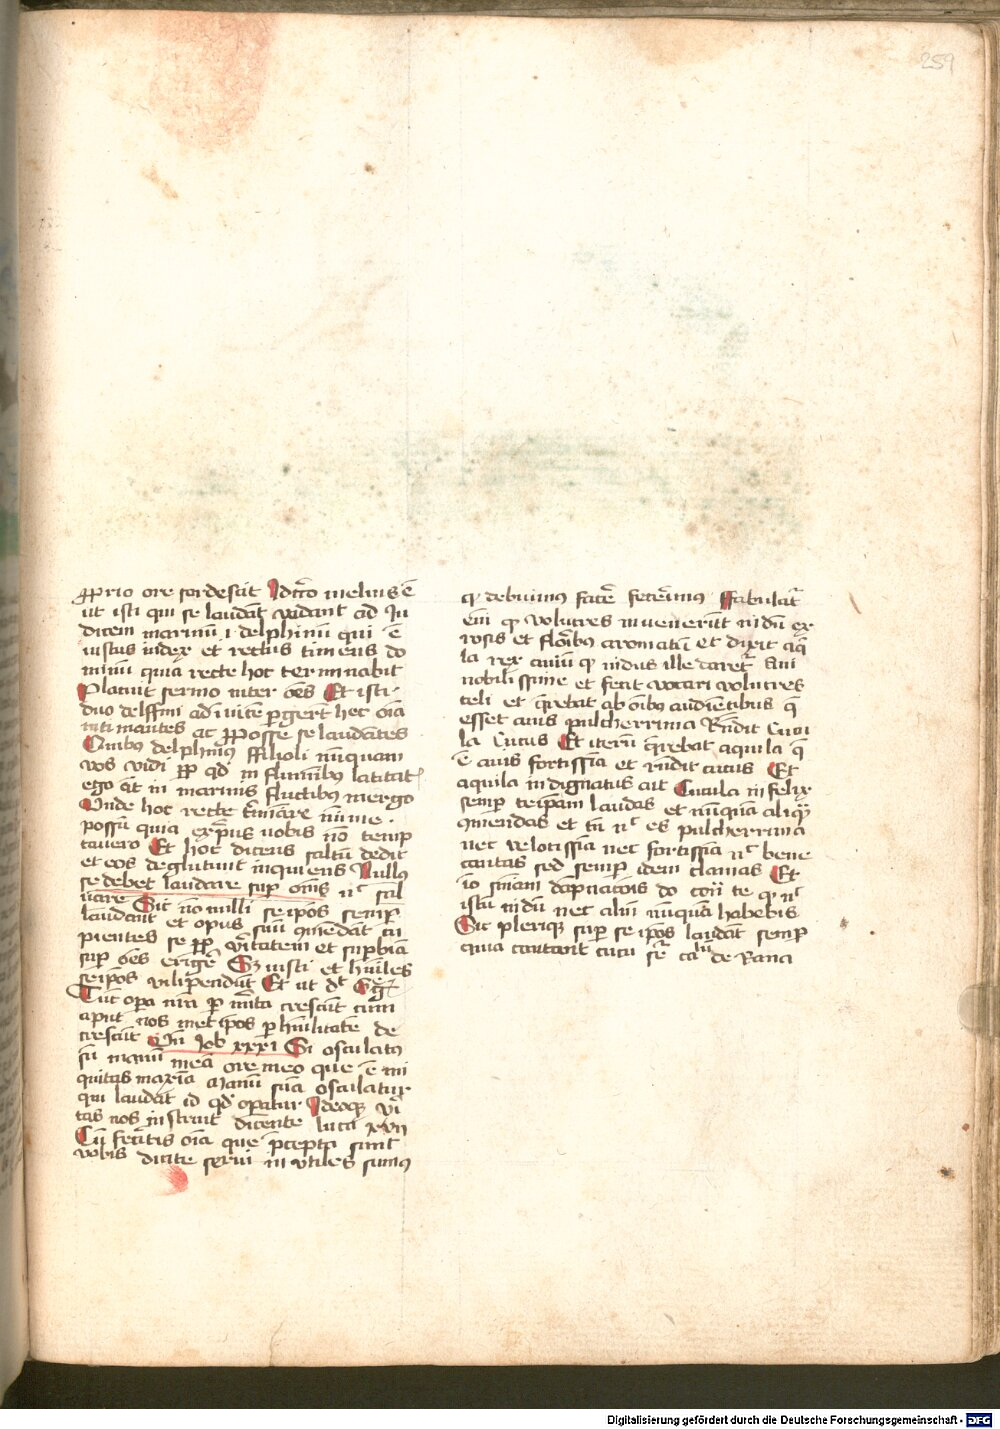 259
ꝓprio ore sordescūt Idcͦ melius ē
ut isti qui se laudāt vadant ad Ju
dicem marinū .i. delphinū qui ē
iustus iudex et rectus timens do
minū quia recte hoc terminabit
Placuit sermo inter oēs Et isti
duo delffini ad īuicē ꝑgerūt hec oīa
intimantes ac ꝓposse se laudātes
Quibꝰ delphinꝰ ffilioli nūquam
vos vidi qd in fluminibꝰ latitat
ego āt in marinis fluctibꝰ mergo
Unde hoc recte t̄minare nūme
possū quia expͥus vobis nō temp
tavero Et hoc dicens saltū dedit
et eos deglutiuit inquiens Nullꝰ
se debet laudare suꝑ om̄s nͨ sal
uare Sic nōnulli seipōs semꝑ
laudant et opus suū ꝯmēdāt cu
pientes se v̄itatem et suꝑbiā
suꝑ oēs erigē Sꝫ iusti et hūiles
seipōs vilipendūt Et ut dt Gͬg
Tūc oꝑa nrā ꝑ mͥta crescūt cum
aput nos metipōs ꝑ hūilitatē de
crescūt Uñ Job xxxi Si osculatꝰ
sū manū meā ore meo que ē ini
quitas maxīa Manū suā osculatur
qui laudāt id qd oꝑatur Ideoqꝫ vͥi
tas nos instruit dicente luca xvii
Cū fecͥitis oīa que p̄cepta sunt
vobis dicite servi inutiles sumus
ꝙ debuimꝰ facͤ fecͥimus ffabulat̄
eīm ꝙ volucres invenerūt nidū ex
rosis et flor̄ibꝰ aromatū et dixit aq̄i
la rex aviū ꝙ nidus ille daret᷑ Avi
nobilissime et fecit vocari volucres
celi et q̄rebat ab oībꝰ audientibus q̄
esset avis pulcherrima Rn̄dit Cucu
la Cucus Et iterū q̄rebat aquila q̄
ē avis fortissīa et rn̄dit cucus Et
aquila indignatus ait Cucula infelix
semꝑ teipsam laudas et nūquā aliqͣ
ꝯmendas et tn̄ nͨ es pulcherrima
nec velotissīa nec fortissīa nͨ bene
cantas sed semꝑ idem clamas Et
iō snīam dāpnacois do cont᷑ te ꝙ nͨ
istū nidū nec aliū nūquā habebis
Sic pleriqꝫ suꝑ seipōs laudāt semꝑ
quia cantant cucu de Rana
Digitalisierung gefördert durch die Deutsche Forschungsgemeinschaft - DFG